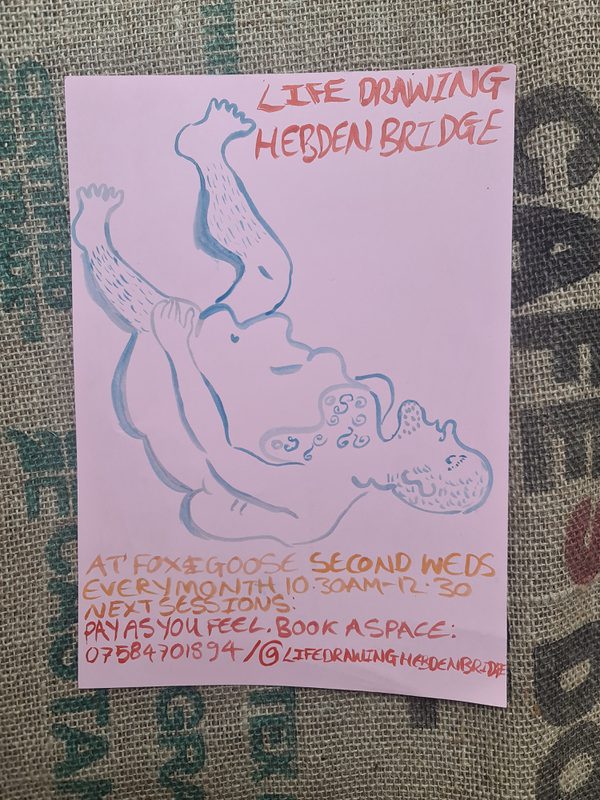 LIFE DRAWING
HEBDEN BRIDGE
AT FOX & GOOSE SECOND WEDS
EVERY MONTH 10.30AM-12.30
NEXT SESSIONS:
PAY AS YOU FEEL. BOOK A SPACE:
07584701894/@LIFEDRAWINGHEBDENBRIDGE
CAFES